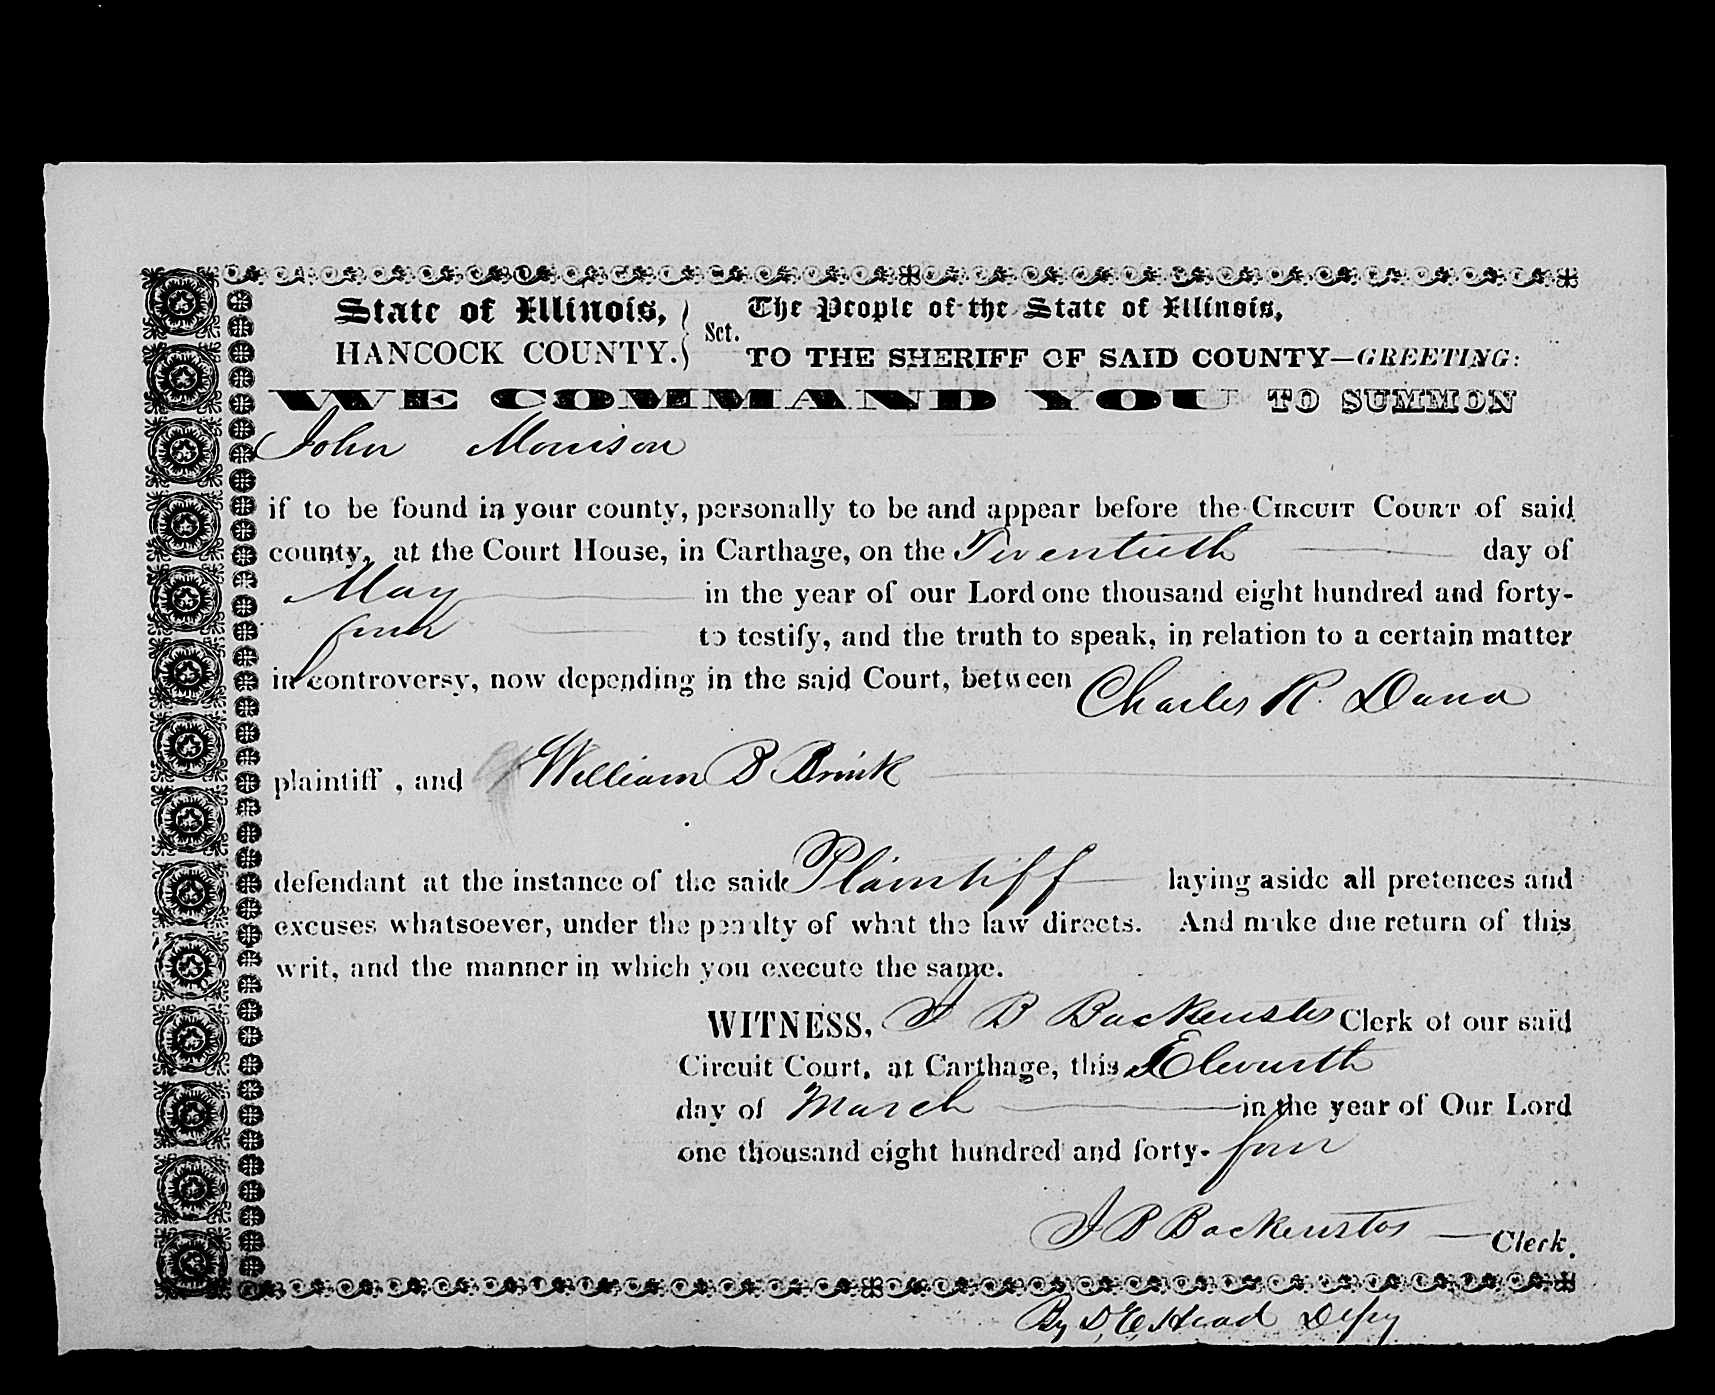 State of Illinois, } Sct. The People of the State of Illinois,
HANCOCK COUNTY. } TO THE SHERIFF OF SAID COUNTY—GREETING:
WE COMMAND YOU TO SUMMON
John Morrison
if to be found in your county, personally to be and appear before the CIRCUIT COURT of said
county, at the Court House, in Carthage, on the Twentieth day of
May in the year of our Lord one thousand eight hundred and forty-
four to testify, and the truth to speak, in relation to a certain matter
in controversy, now depending in the said Court, between Charles R. Dana
plaintiff , and William B Brink
defendant at the instance of the said Plaintiff laying aside all pretences and
excuses whatsoever, under the penalty of what the law directs. And make due return of this
writ, and the manner in which you execute the same.
WITNESS, J B Backenstos Clerk of our said
Circuit Court, at Carthage, this Elevnth
day of March in the year of Our Lord
one thousand eight hundred and forty- four
J B Backenstos Clerk.
By D. E. Head Depy